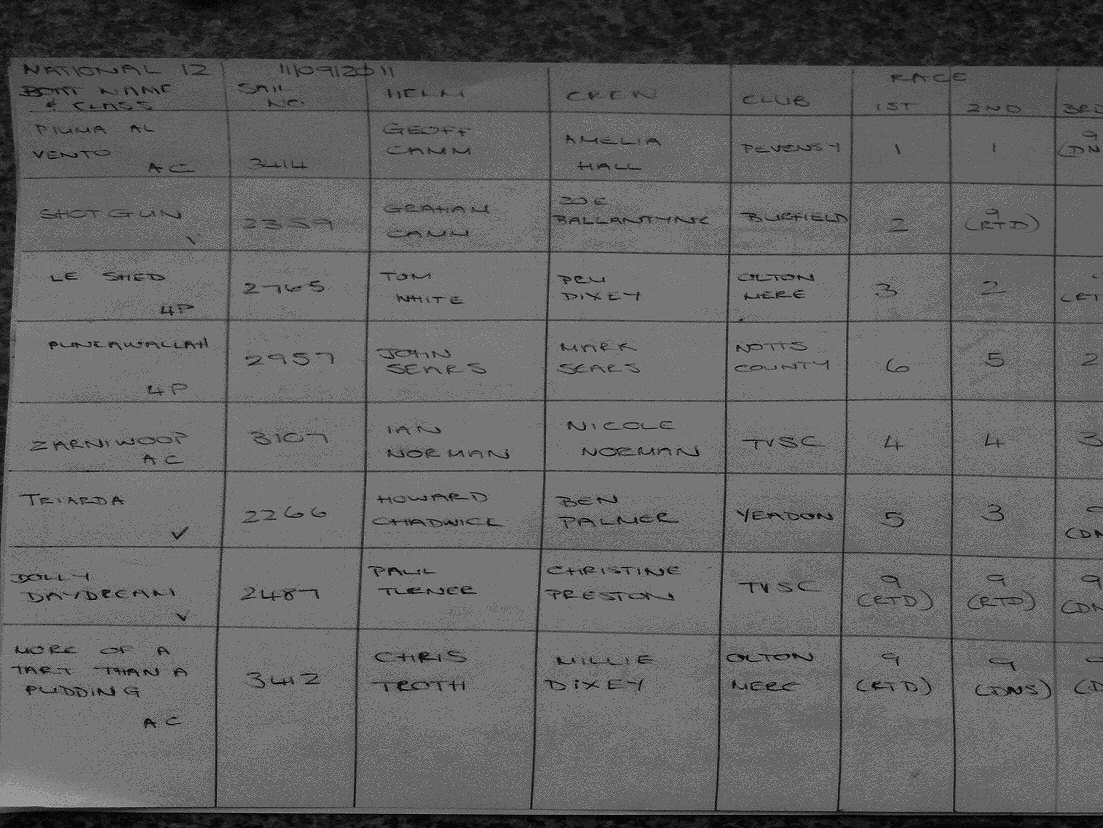 NATIONAL 12 11/09/2011
BOAT NAME & CLASS SAIL NO. HELM CREW CLUB RACE 1ST 2ND 3RD
PIUMA AL VENTO AC 3414 GEOFF CAMM AMELIA HALL PEVENSY 1 1 9 (DN
SHOTGUN 2359 GRAHAM CAMM ZOE BALLANTYNE BURFIELD 2 9 (RTD)
LE SHED 4P 2765 TOM WHITE PRU DIXEY OLTON MERE 3 2 (RT
PUNKAWALLAH 4P 2957 JOHN SEARS MARK SEARS NOTTS COUNTY 6 5 2
ZARNIWOOP AC 3107 IAN NORMAN NICOLE NORMAN TVSC 4 4 3
TRIARDA ✓ 2266 HOWARD CHADWICK BEN PALMER YEADON 5 3 9 (DN
DOLLY DAYDREAM ✓ 2487 PAUL TURNER CHRISTINE PRESTON TVSC 9 (RTD) 9 (RTD) 9 (DN
MORE OF A TART THAN A PUDDING AC 3412 CHRIS TROTH MILLIE DIXEY OLTON MERE 9 (RTD) 9 (DNS) (D